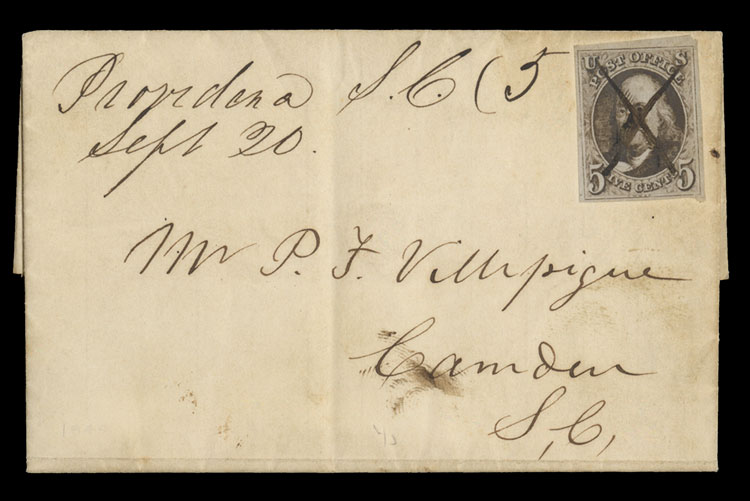 Providence S.C. (5
Sept 20.
U S
POST OFFICE
5 FIVE CENTS 5
Mr P. F. Villepigue
Camden
S,C,